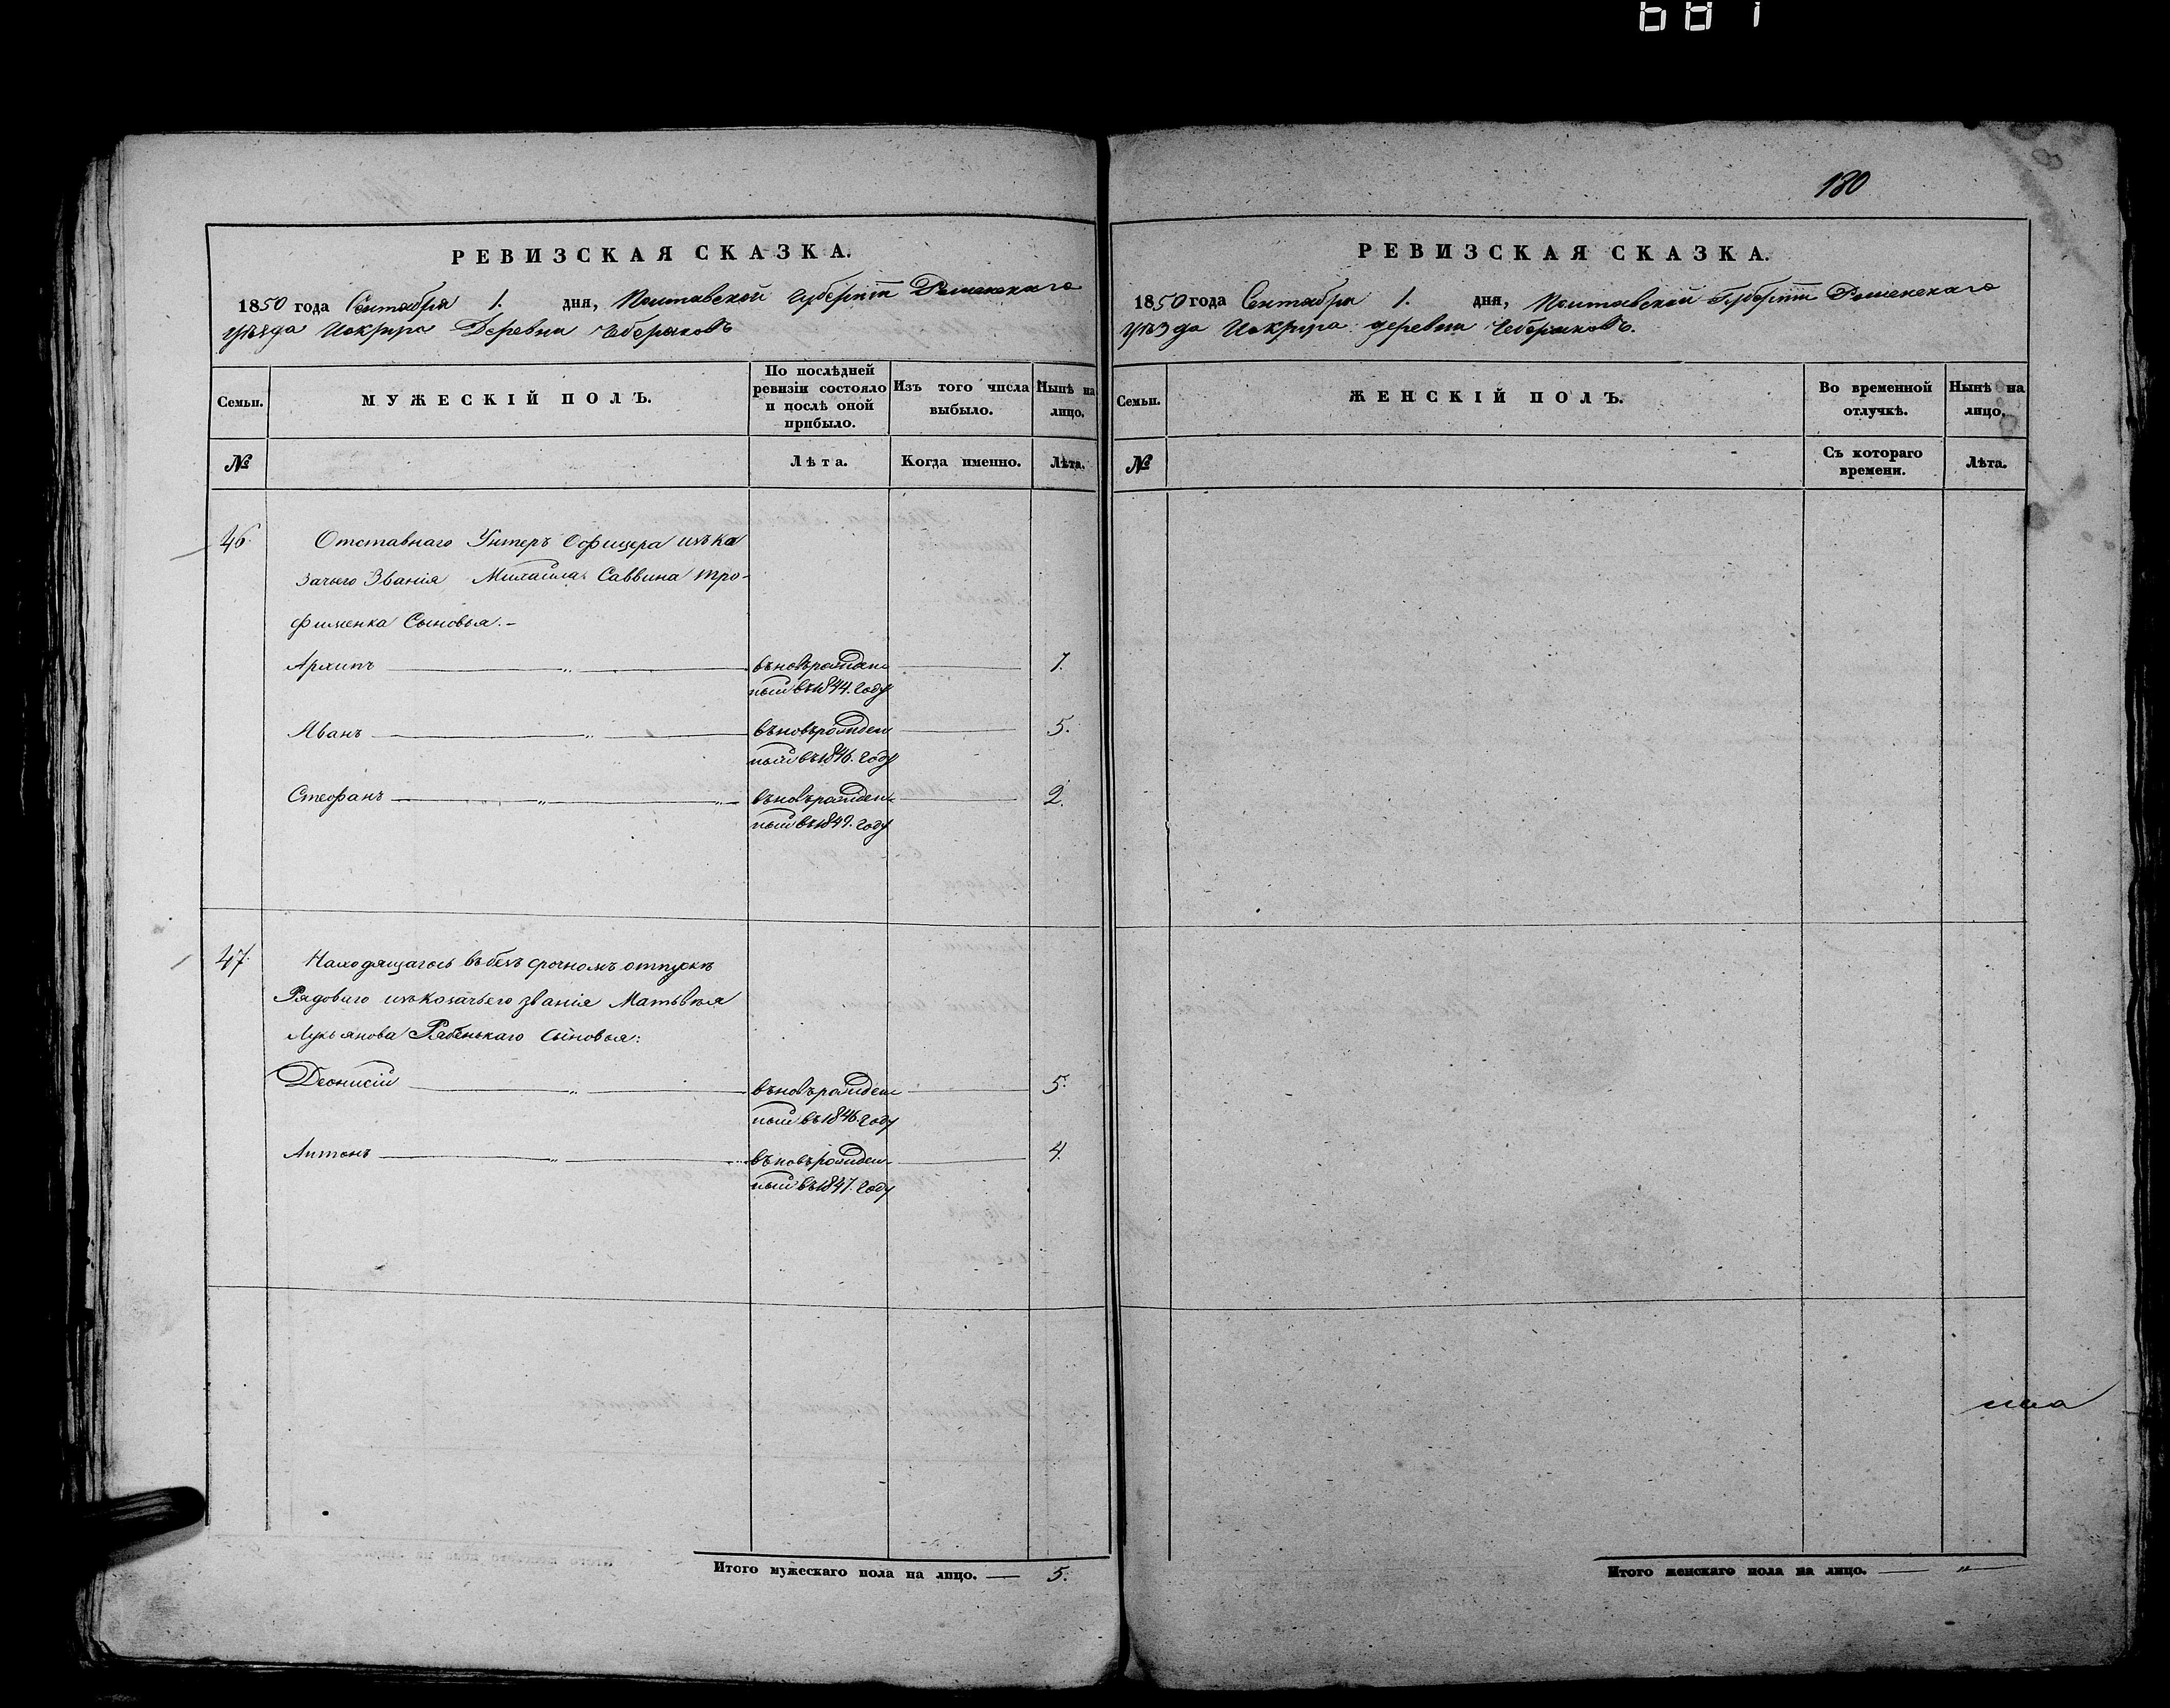 681
180
РЕВИЗСКАЯ СКАЗКА.
1850 года Сентября 1. дня, Полтавской Губерніи Роменскаго
уѣзда деревни
Семьи.
МУЖЕСКІЙ ПОЛЪ.
По послѣдней ревизіи состояло и послѣ оной прибыло.
Изъ того числа выбыло.
Нынѣ на лицо.
№
Лѣта.
Когда именно.
Лѣта.
46.
Отставнаго Унтеръ Офицера изъ ка
зачьего Званія Михаила Саввина Тро-
фименка Сыновья.-
Архипъ въновърожден 7.
ный въ 1844. году
Иванъ въновърожден 5.
ный въ 1846. году
Стефанъ въновърожден 2.
ный въ 1849. году
47.
Находящагось въ безъ срочномъ отпускѣ
Рядоваго изъ козачьего званія Матьвѣя
Лукьянова Рябенькаго сыновья:
Деонисій въновърожден 5.
ный въ 1846. году
Антонъ въновърожден 4.
ный въ 1847. году
Итого мужескаго пола на лицо. — 5.
РЕВИЗСКАЯ СКАЗКА.
1850 года Сентября 1. дня, Полтавской Губерніи Роменскаго
уѣзда деревни
Семьи.
ЖЕНСКІЙ ПОЛЪ.
Во временной отлучкѣ.
Нынѣ на лицо.
№
Съ котораго времени.
Лѣта.
Итого женскаго пола на лицо. — „